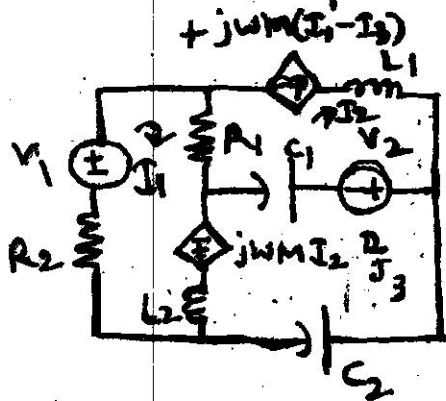 + jWM(I₁-I₃)
L₁
I₂
V₁
±
I₁
R₁
C₁
V₂
+
R₂
jWM I₂
I₃
L₂
C₂